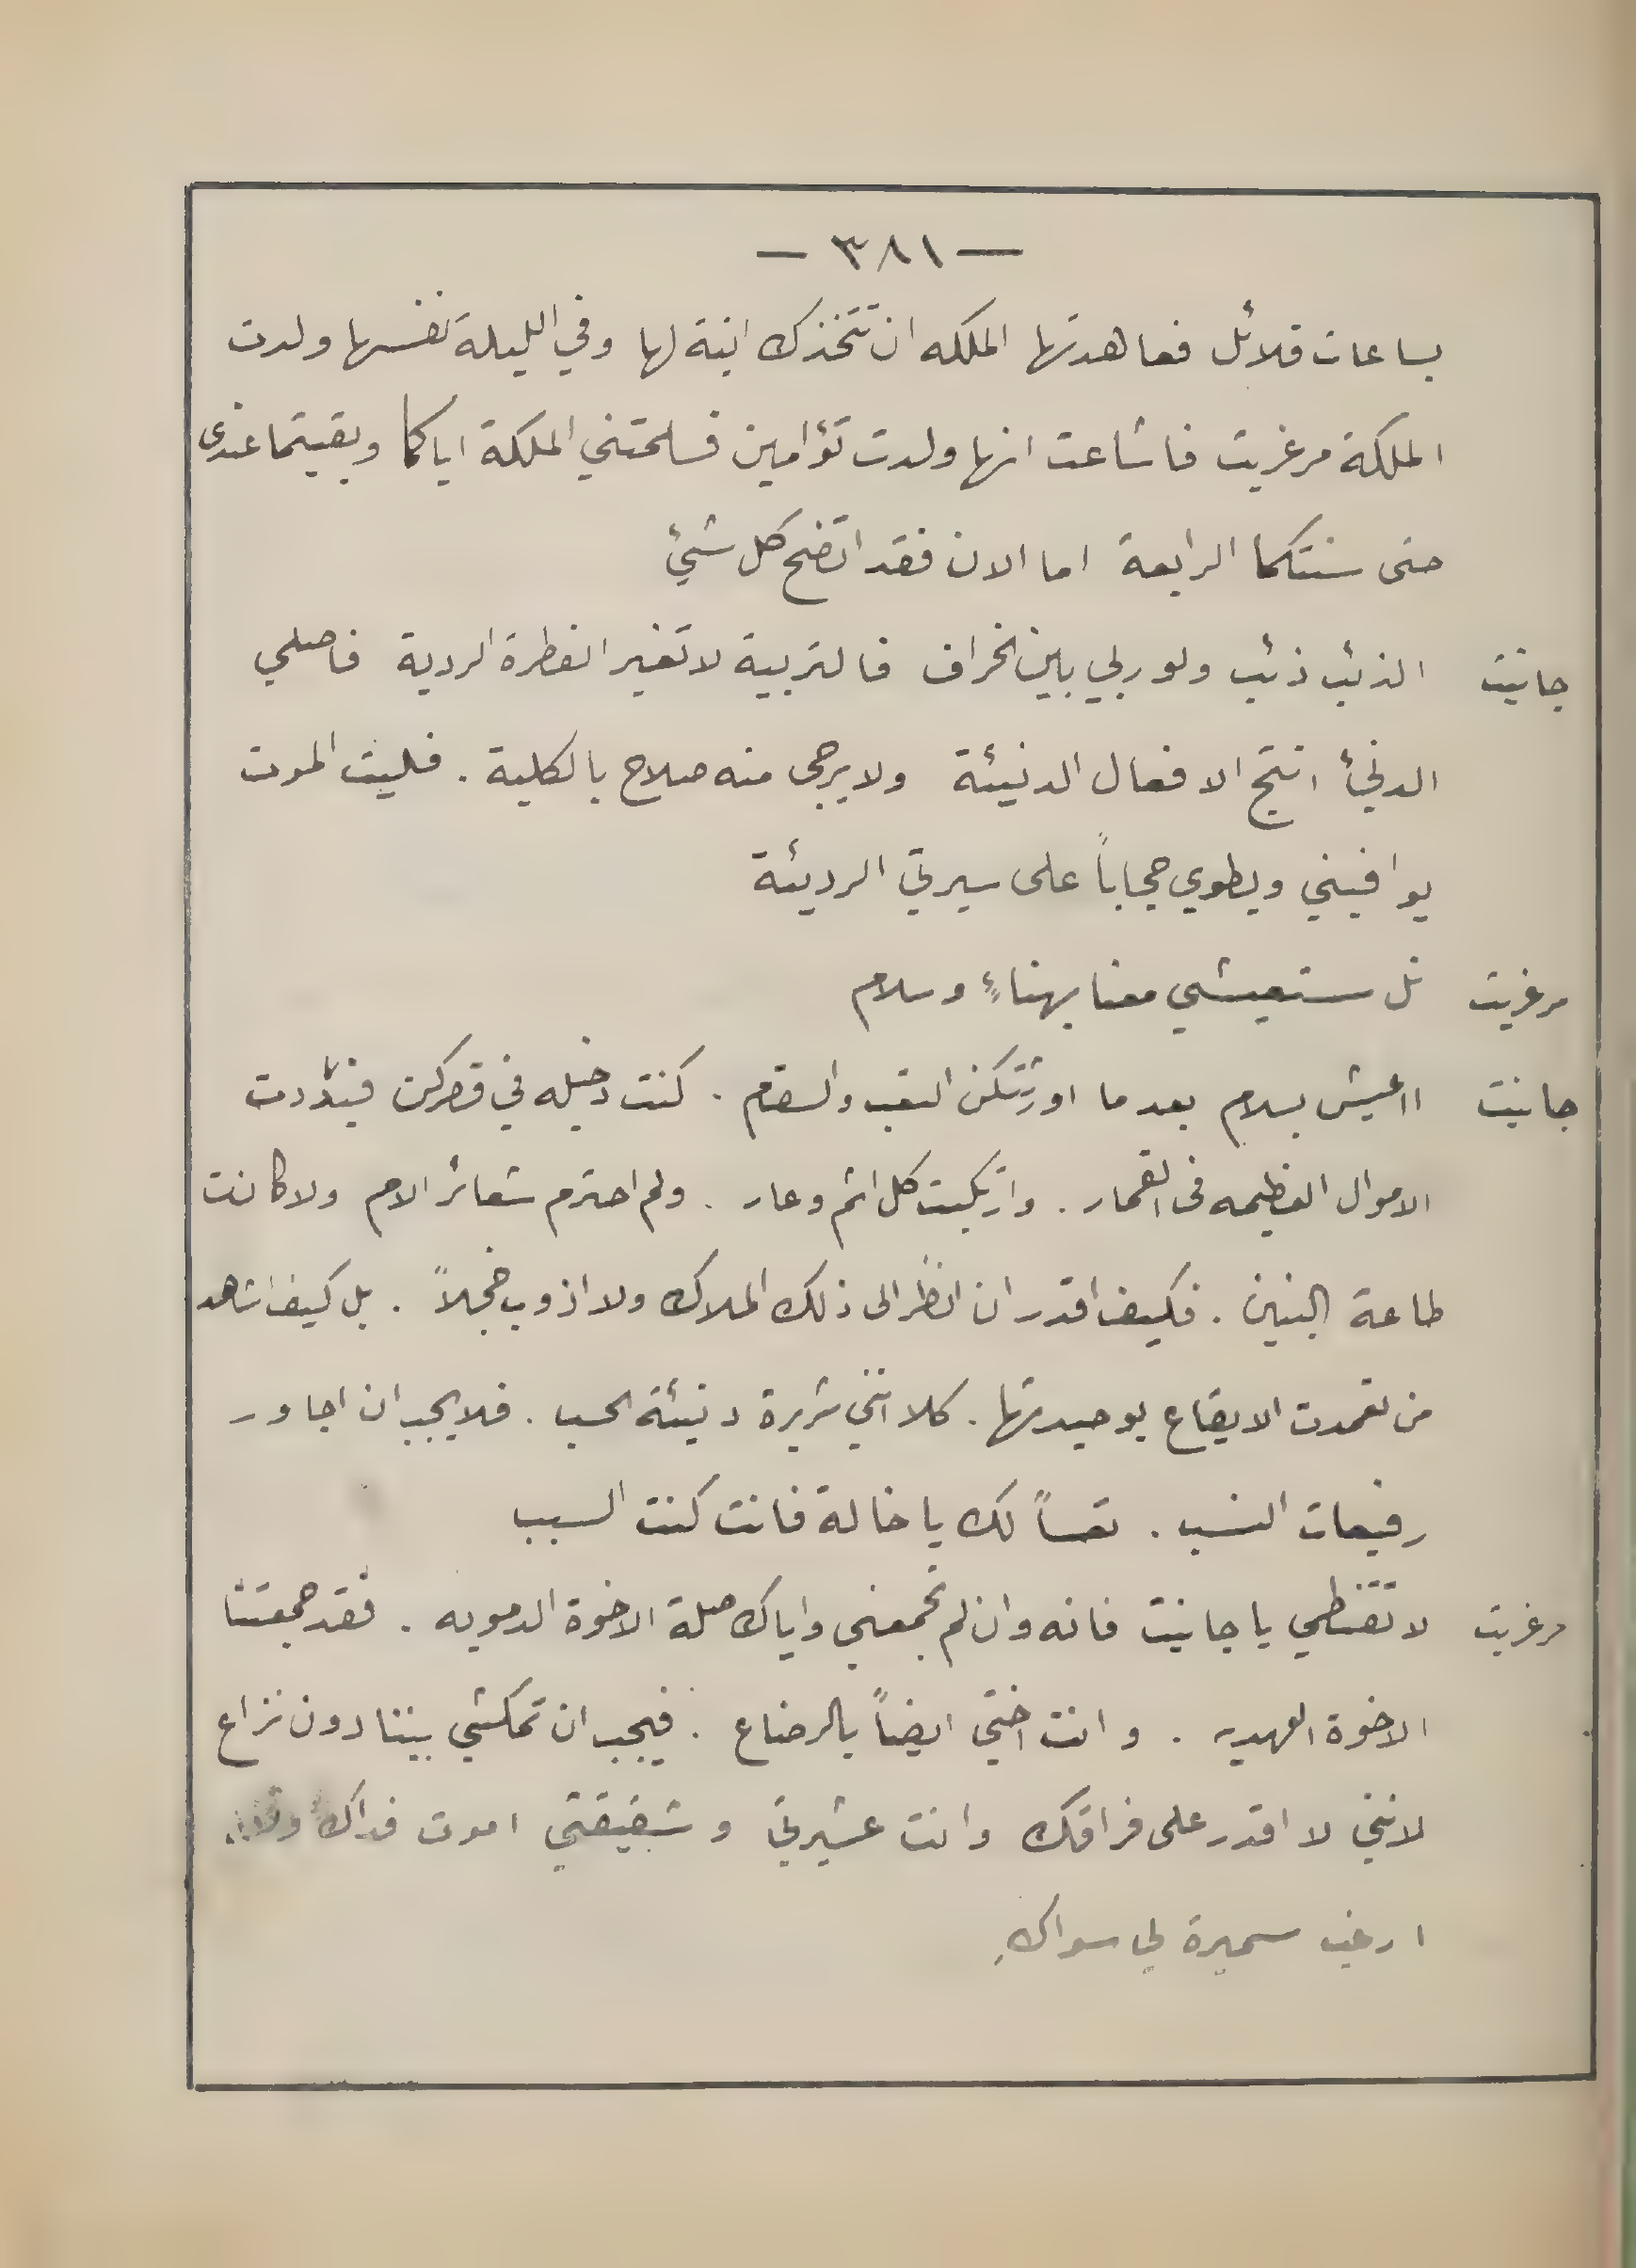 — ٣٨١ —
بساعات قلائل فعاهدتها الملكه ان تتخذك ابنة لها وفي الليلة نفسها ولدت
الملكة مرغريت فاشاعت انها ولدت تؤامين فسلمتني الملكة اياكما وبقيتما عندى
حتى سنتكما الرابعة اما الان فقد اتضح كل شيئ
جانيت الذئب ذئب ولو ربي بين الخراف فالتربية لا تغير الفطرة الردية فاصلي
الدنيئ انتج الافعال الدنيئة ولا يرجى منه صلاح بالكلية . فليت الموت
يوافيني ويطوي حجاباً على سيرتي الرديئة
مرغريت بل ستعيشي معنا بهناءٍ وسلام
جانيت ااعيش بسلام بعد ما اورثتكن التعب والسقام . كنت دخيله في قصركن فبددت
الاموال العظيمه فى القمار . وارتكبت كل اثم وعار . ولم احترم شعائر الام ولا كانت
طاعة البنين . فكيف اقدر ان انظر الى ذلك الملاك ولا اذوب خجلاً . بل كيف اشاهد
من تعمدت الايقاع بوحيدتها . كلا انني شريرة دنيئة الحسب . فلا يجب ان اجاور
رفيعات النسب . تعساً لك يا خالة فانت كنت السبب
مرغريت لا تقنطي يا جانيت فانه وان لم تجمعني واياك صلة الاخوة الدمويه . فقد جمعتنا
الاخوة العهديه . وانت اختي ايضاً بالرضاع . فيجب ان تمكثي بيننا دون نزاع
لانني لا اقدر على فراقك وانت عشيرتي وشفيقتي اموت فداك
ارغب سميرة لي سواكِ